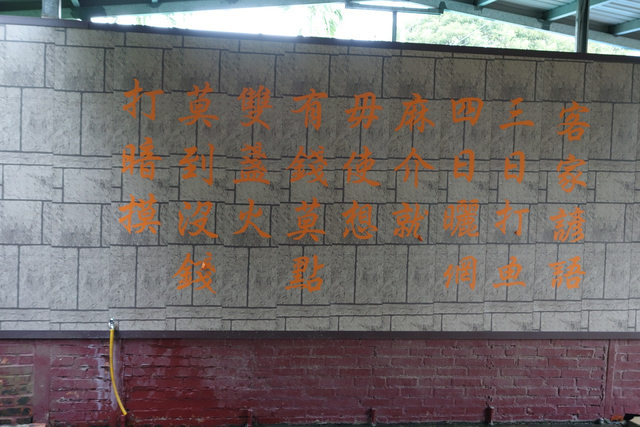 客家諺語
三日打魚
四日曬網
麻介就
毋使想
有錢莫點
雙盞火
莫到沒錢
打暗摸